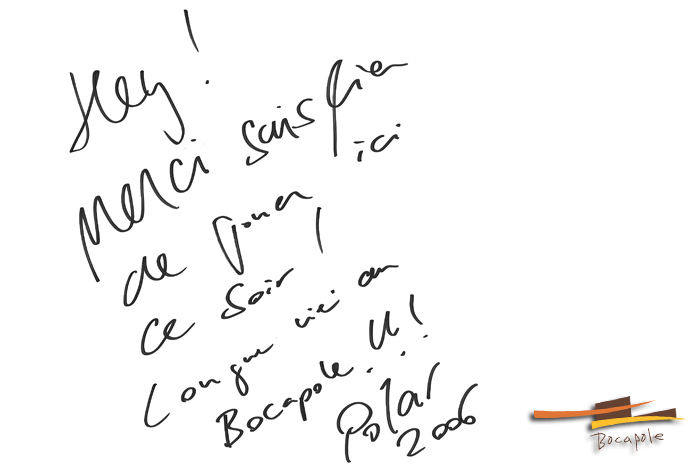 Hey!
Merci suis fier
de jouer ici
ce soir,
Longue vie au
Bocapole !!!
Polar
2006
Bocapole